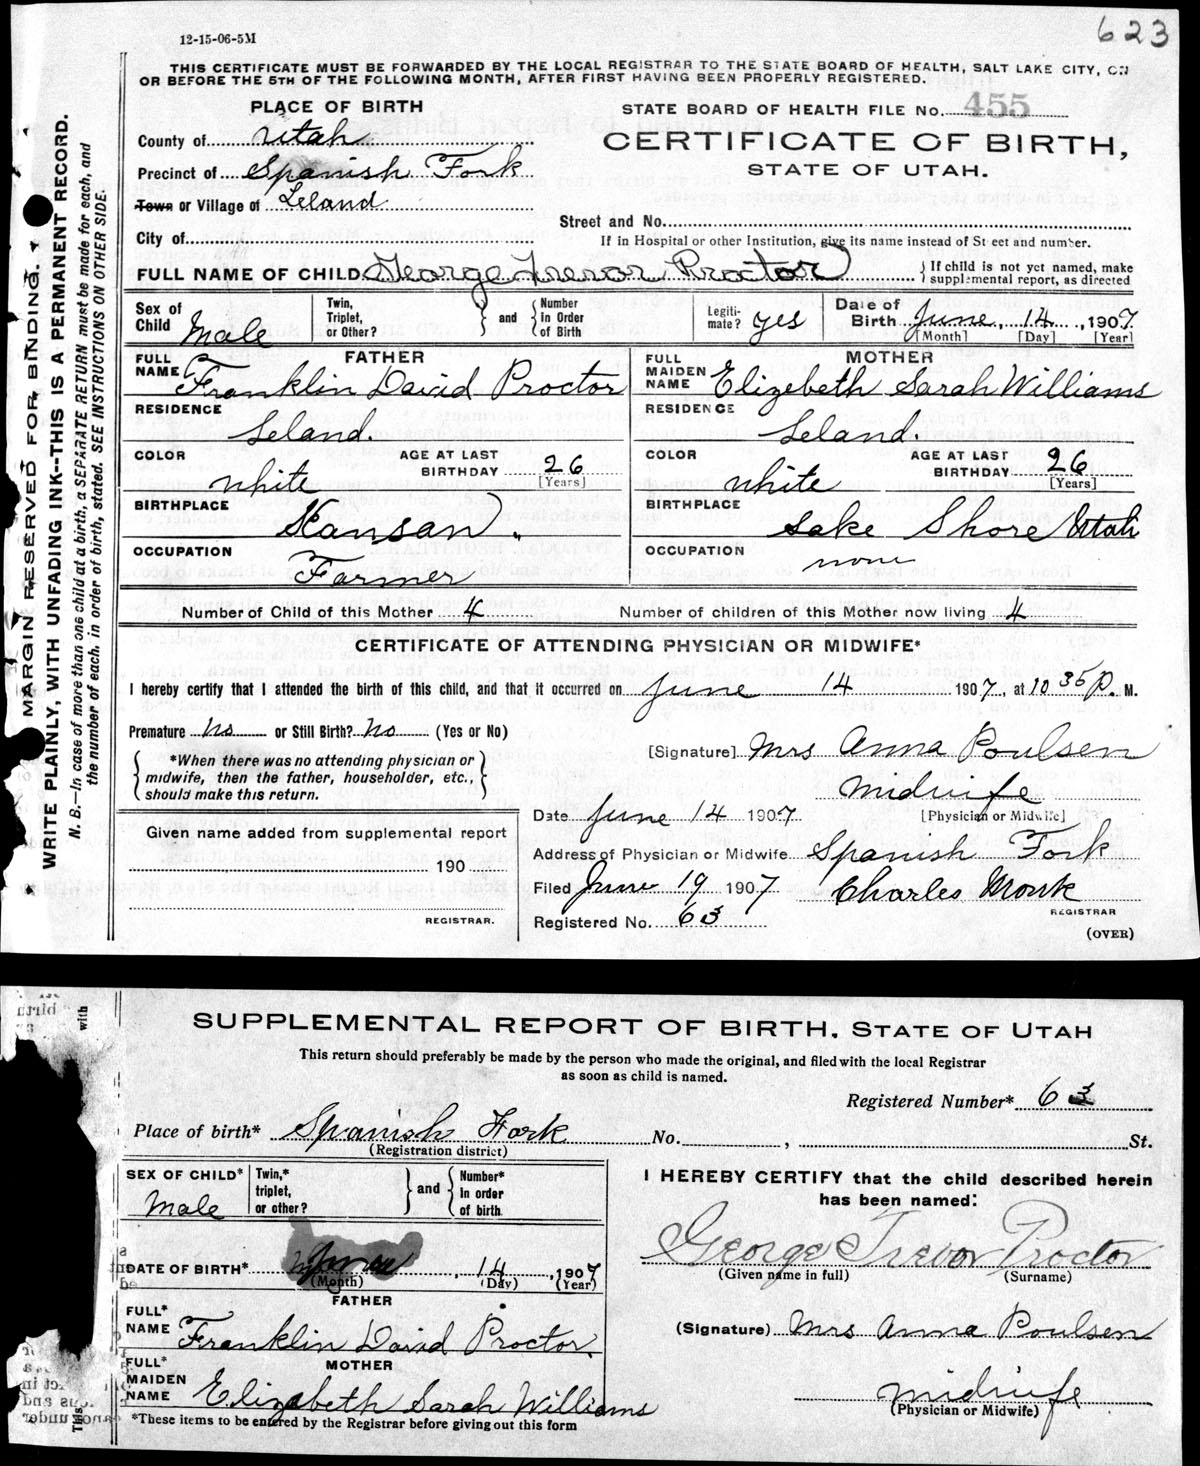 623
12-15-06-5M
THIS CERTIFICATE MUST BE FORWARDED BY THE LOCAL REGISTRAR TO THE STATE BOARD OF HEALTH, SALT LAKE CITY, ON
OR BEFORE THE 5TH OF THE FOLLOWING MONTH, AFTER FIRST HAVING BEEN PROPERLY REGISTERED.
PLACE OF BIRTH
STATE BOARD OF HEALTH FILE No. 455
County of Utah
CERTIFICATE OF BIRTH,
STATE OF UTAH.
Precinct of Spanish Fork
Town or Village of Leland
Street and No.
City of
If in Hospital or other Institution, give its name instead of Street and number.
FULL NAME OF CHILD George Trevor Proctor } If child is not yet named, make supplemental report, as directed
Sex of Child Male Twin, Triplet, or Other? } and { Number in Order of Birth Legiti-mate? yes Date of Birth June, 14, 1907
[Month] [Day] [Year]
FATHER
FULL NAME Franklin David Proctor
RESIDENCE
Leland.
COLOR white AGE AT LAST BIRTHDAY 26
[Years]
BIRTHPLACE
OCCUPATION
Farmer
MOTHER
FULL MAIDEN NAME Elizebeth Sarah Williams
RESIDENCE
Leland.
COLOR white AGE AT LAST BIRTHDAY 26
[Years]
BIRTHPLACE
Lake Shore Utah
OCCUPATION
none
Number of Child of this Mother 4 Number of children of this Mother now living 4
CERTIFICATE OF ATTENDING PHYSICIAN OR MIDWIFE*
I hereby certify that I attended the birth of this child, and that it occurred on June 14 1907, at 10 35 P. M.
Premature No or Still Birth? No (Yes or No)
[Signature] Mrs Anna Poulsen
{ *When there was no attending physician or
midwife, then the father, householder, etc.,
should make this return. }
Midwife
[Physician or Midwife]
Date June 14 1907
Given name added from supplemental report
190
REGISTRAR.
Address of Physician or Midwife Spanish Fork
Filed June 19 1907 Charles Monk
REGISTRAR
Registered No. 63
(OVER)
MARGIN RESERVED FOR BINDING.
WRITE PLAINLY, WITH UNFADING INK--THIS IS A PERMANENT RECORD.
N. B.—In case of more than one child at a birth, a SEPARATE RETURN must be made for each, and
the number of each, in order of birth, stated. SEE INSTRUCTIONS ON OTHER SIDE.
SUPPLEMENTAL REPORT OF BIRTH. STATE OF UTAH
This return should preferably be made by the person who made the original, and filed with the local Registrar
as soon as child is named.
Registered Number* 63
Place of birth* Spanish Fork No. , St.
(Registration district)
SEX OF CHILD* Male Twin,* triplet, or other? } and { Number* in order of birth
DATE OF BIRTH* June, 14, 1907
(Month) (Day) (Year)
FATHER
FULL* NAME Franklin David Proctor.
MOTHER
FULL* MAIDEN NAME Elizabeth Sarah Williams
*These items to be entered by the Registrar before giving out this form
I HEREBY CERTIFY that the child described herein
has been named:
George Trevor Proctor
(Given name in full) (Surname)
(Signature) Mrs Anna Poulsen
Midwife
(Physician or Midwife)